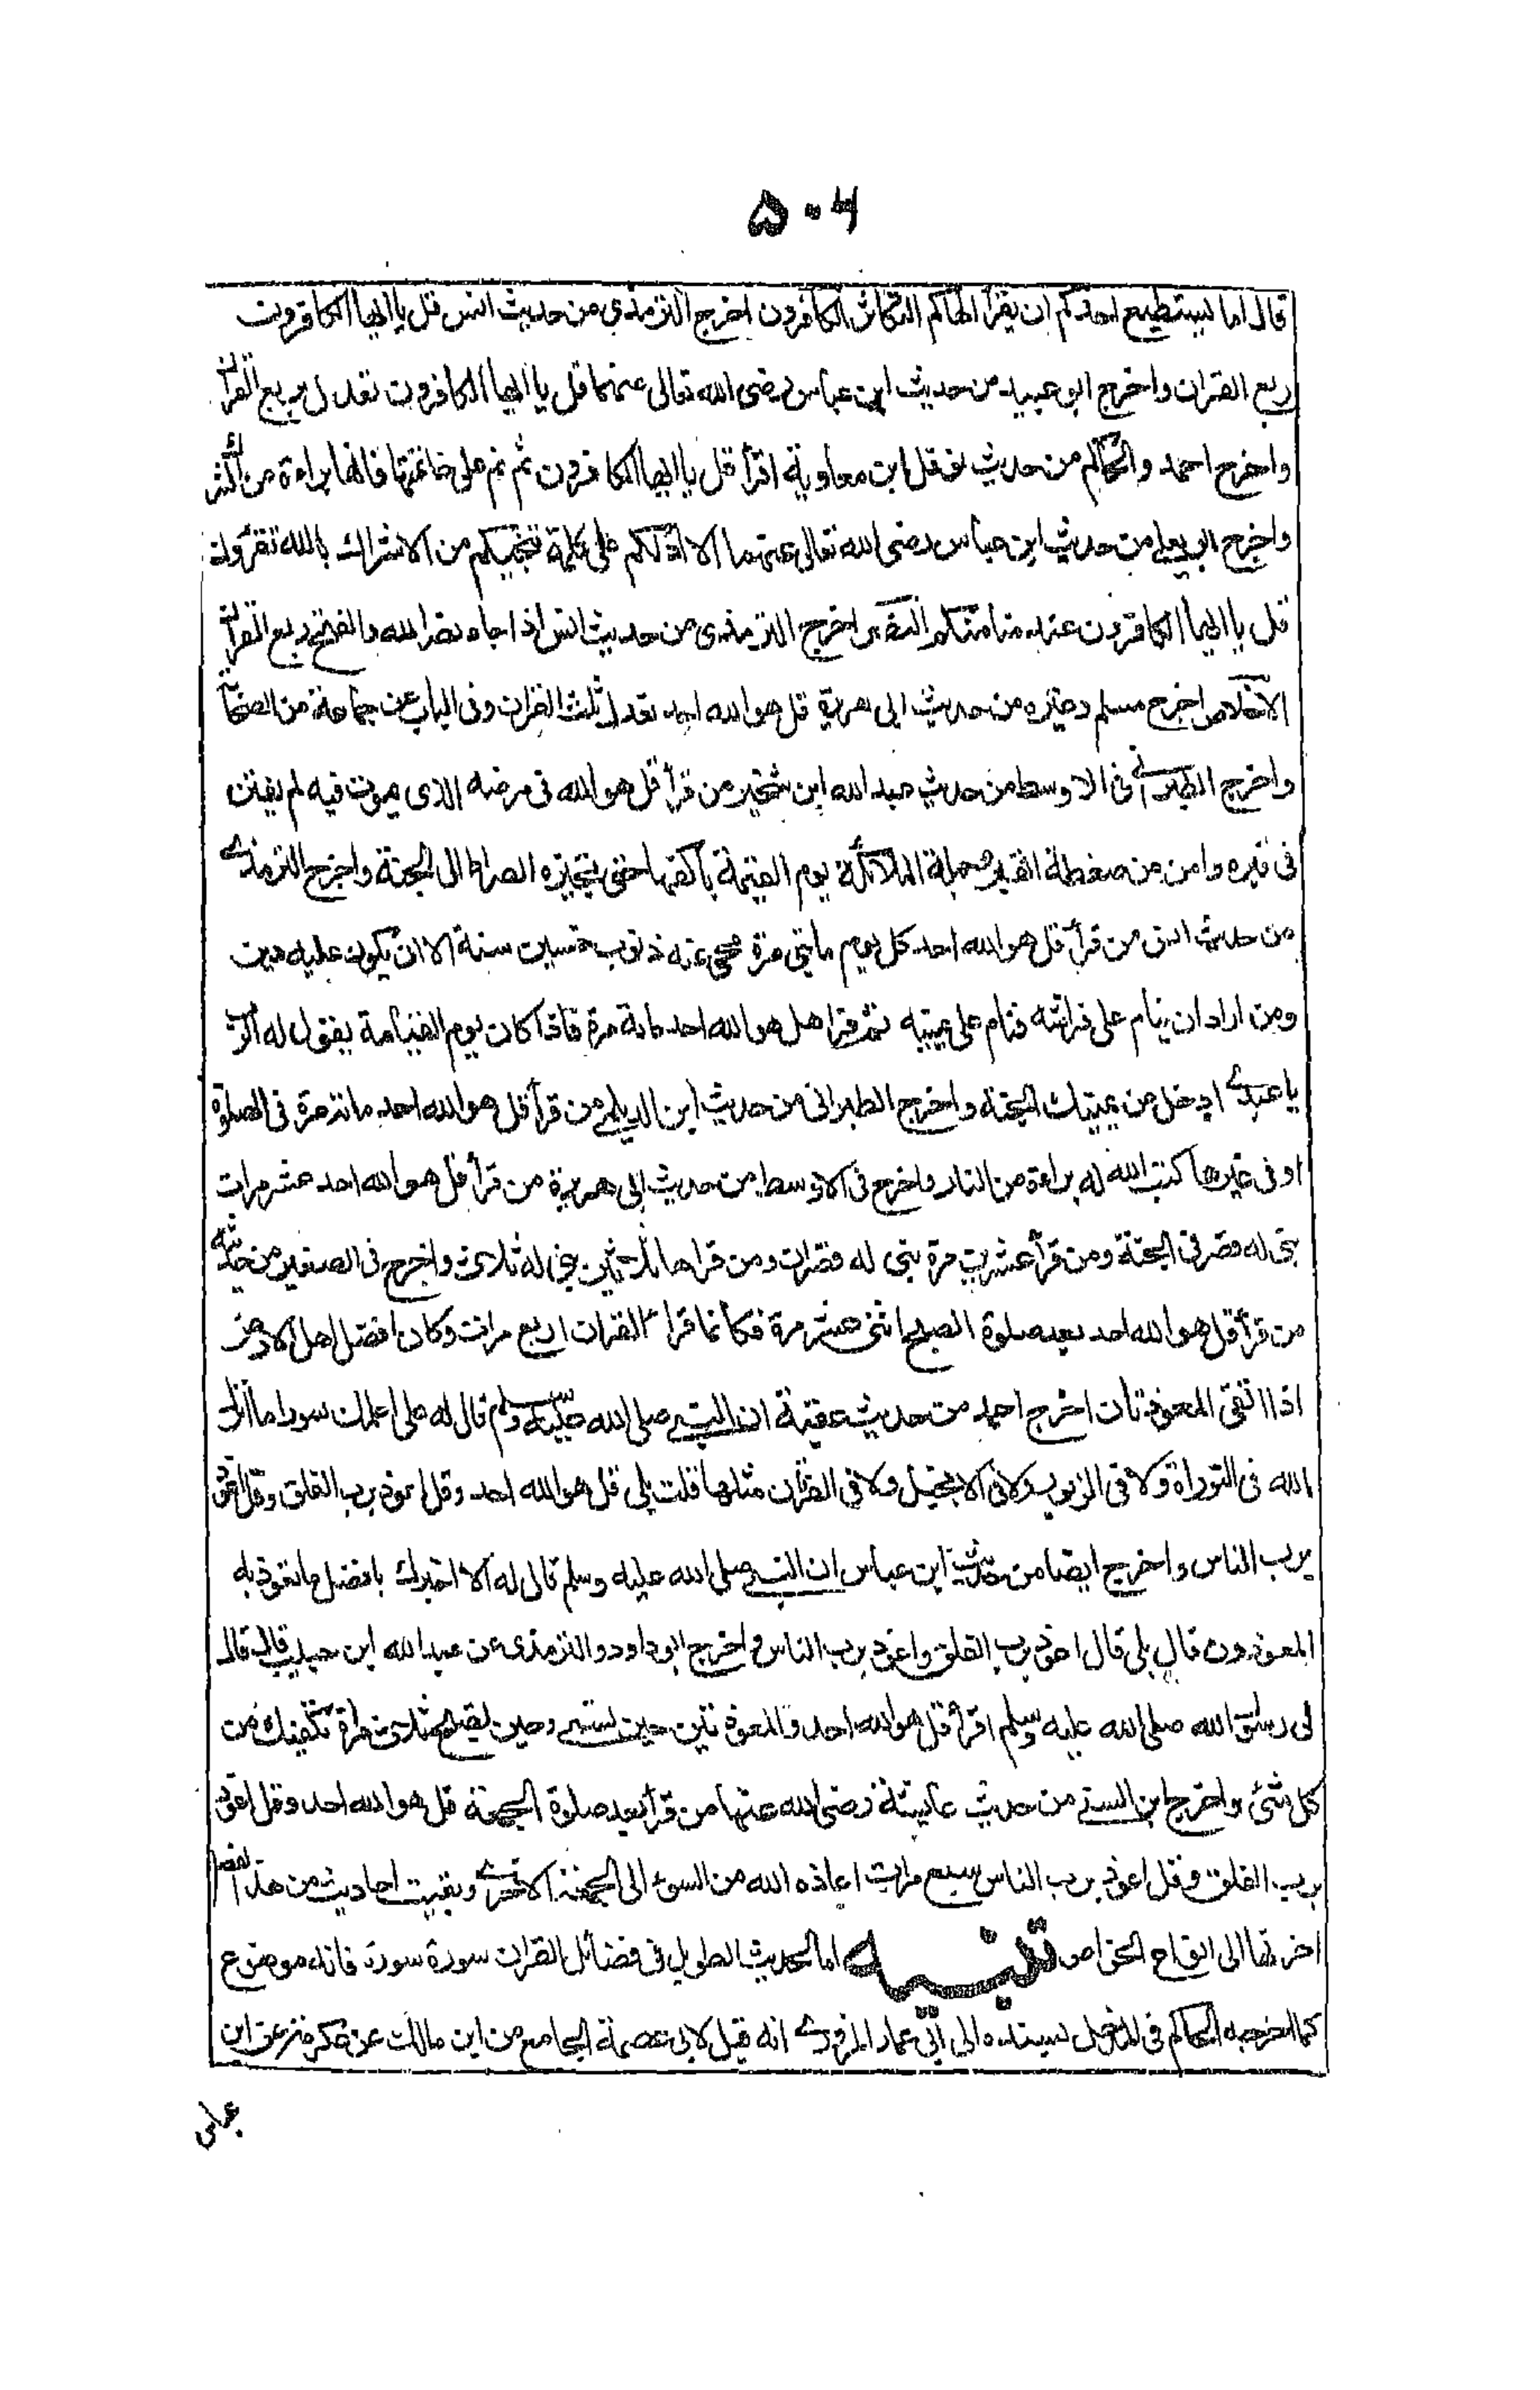 ۵۰۴
قال اما ليستطيع احدكم ان يقرأ الهاكم التكاثر الكافرون اخرج الترمذى من حديث انس قل ياايها الكافرون
ربع القران واخرج ابو عبيد من حديث ابن عباس رضى الله تعالى عنهما قل ياايها الكافرون تعدل بربع القران
واخرج احمد والحاكم من حديث نوفل ابن معاوية اقرأ قل ياايها الكافرون ثم نم على خاتمتها فانها براءة من الشرك
واخرج ابو يعلے من حديث ابن عباس رضى الله تعالى عنهما الا ادلكم على كلمة تنجيكم من الاشراك بالله تقرؤن
قل ياايها الكافرون عند منامكم النصر اخرج الترمذى من حديث انس اذا جاء نصر الله والفتح ربع القران
الاخلاص اخرج مسلم وغيره من حديث ابى هريرة قل هو الله احد تعدل ثلث القران وفى الباب عن جماعة من الصحابة
واخرج الطبرانے فى الاوسط من حديث عبد الله ابن شخير من قرأ قل هو الله فى مرضه الذى يموت فيه لم يفتن
فى قبره وامن من ضغطة القبر وحملة الملائكة يوم القيمة باكفها حتى تجيزه الصراط الى الجنة واخرج الترمذے
من حديث انس من قرأ قل هو الله احد كل يوم مايتى مرة محى عنه ذنوب خمسين سنة الا ان يكون عليه دين
ومن اراد ان ينام على فراشه فنام على يمينه ثم قرا هل هو الله احد مادة مرة فاذا كان يوم القيامة يقول له الرب
يا عبدے ادخل من يمينك الجنة واخرج الطبرانى من حديث ابن الديلمے من قرأ قل هو الله احد مائة مرة فى الصلوة
او فى غيرها كتب الله له براءة من النار واخرج فى الاوسط من حديث ابى هريرة من قرأ قل هو الله احد عشر مرات
بنى له قصر فى الجنة ومن قرأ عشرين مرة بنى له قصران ومن قراها ثلاثين بنى له ثلاث واخرج فى الصغير من حديثه
من قرأ قل هو الله احد بعد صلوة الصبح اثنى عشر مرة فكانما قرا القران اربع مرات وكان افضل اهل الارض
اذا اتقى المعوذتان اخرج احمد من حديث عقبة ان النبے صلى الله عليه وسلم قال له الى اعلمك سورا ما انزل
الله فى التوراة ولا فى الزبور ولا فى الانجيل ولا فى القرآن مثلها قلت بلى قل هو الله احد وقل اعوذ برب الفلق وقل اعوذ
برب الناس واخرج ايضا من حديث ابن عباس ان النبے صلى الله عليه وسلم قال له الا اخبرك بافضل ما تعوذ به
المعوذون قال بلى قال اعوذ برب الفلق واعوذ برب الناس واخرج ابو داود والترمذى عن عبد الله ابن حبيب قال قال
لى رسول الله صلى الله عليه وسلم اقرأ قل هو الله احد والمعوذتين حين تمسے وحين تصبح ثلاث مرة تكفيك من
كل شئ واخرج ابن السنے من حديث عايشة رضى الله عنها من قرأ بعد صلوة الجمعة قل هو الله احد وقل اعوذ
برب الفلق وقل اعوذ برب الناس سبع مرات اعاذه الله من السوء الى الجمعة الاخرے وبقيت احاديث من هذا الفصل
اخرتها الى انواع الخواص تنبيه اما الحديث الطويل فى فضائل القران سورة سورة فانه موضوع
كما اخرجه الحاكم فى المدخل بسنده الى ابى عمار المروزے انه قيل لابى عصمة الجامع من اين مالك عن عكرمة عن ابن